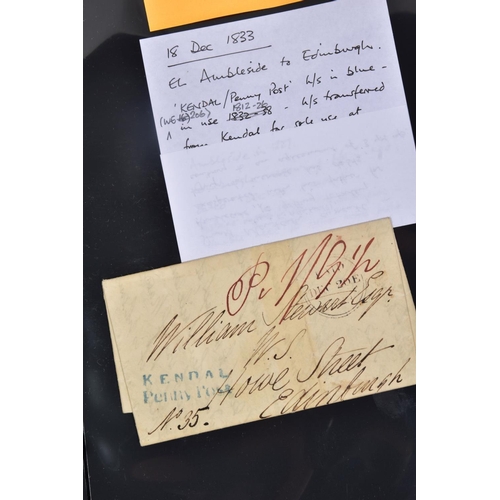 18 Dec 1833
EL Ambleside to Edinburgh.
'KENDAL/Penny Post' h/s in blue -
1812-26
in use 1832-38 - h/s transferred
from Kendal for sole use at
William Stewart Esqr.
W.S.
Howe Street
KENDAL
Penny Post
Edinburgh
No. 35.